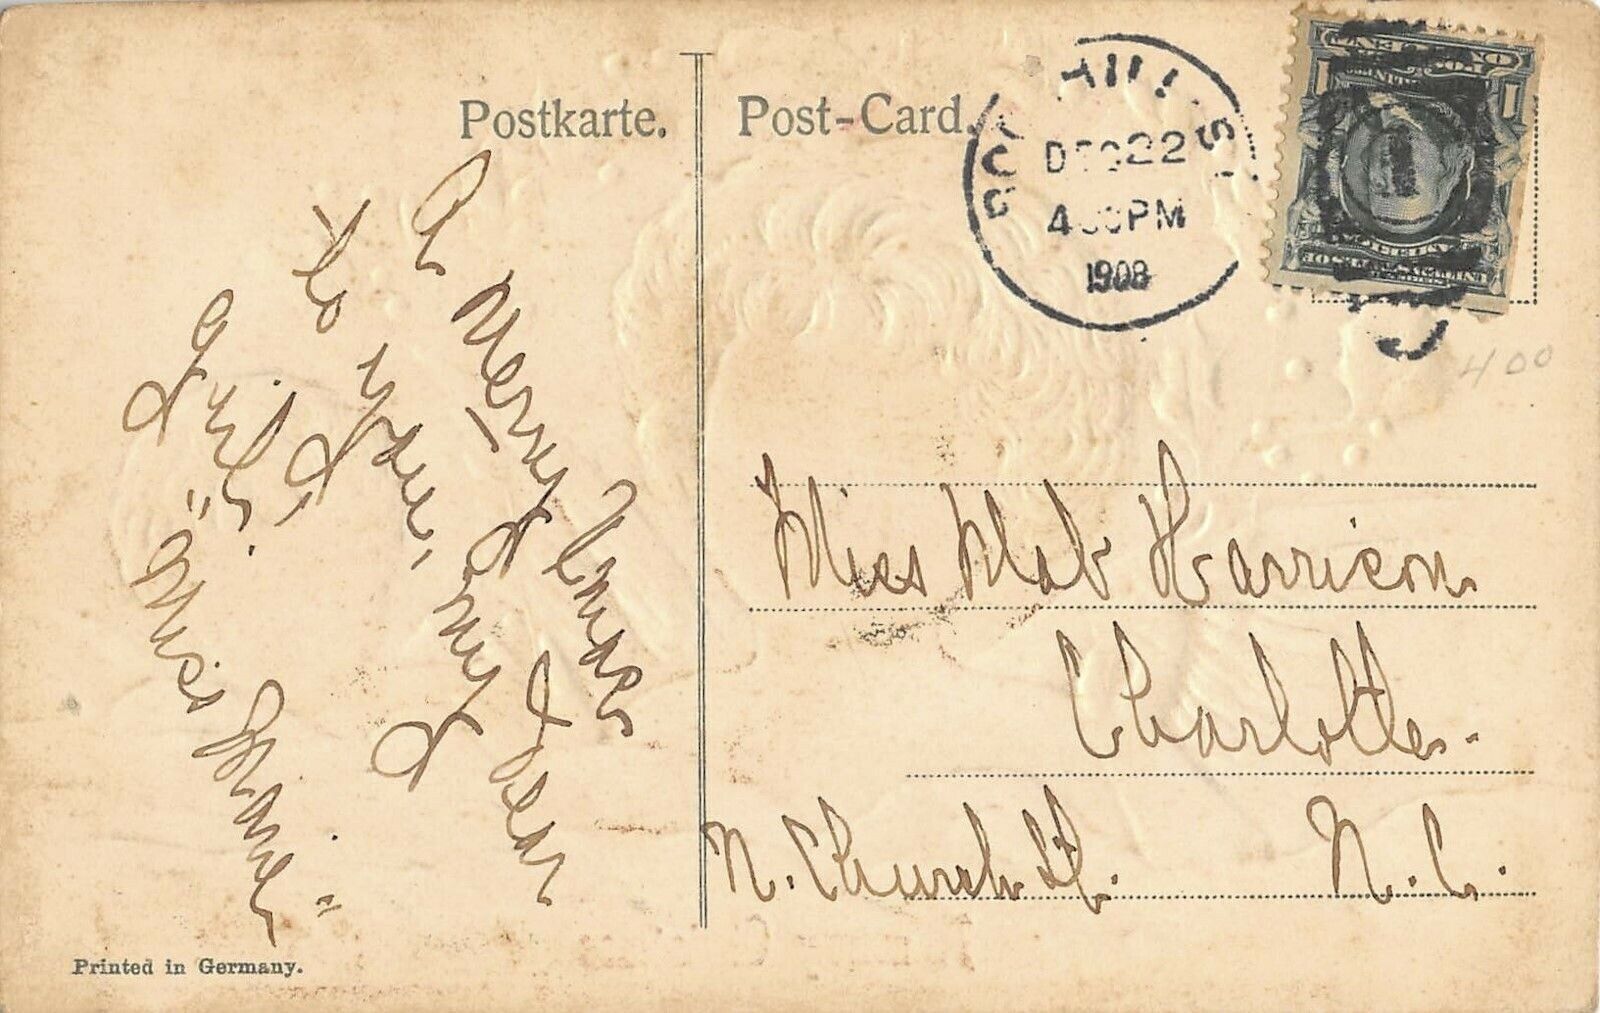 Postkarte.
Post-Card.
DEC 22
4 PM
1908
ONE CENT
1 1
UNITED STATES OF AMERICA
400
A Merry Xmas
to you, my dear
girl.
"Miss Marie"
Miss Mab Harrison
Charlotte.
N. Church St. N. C.
Printed in Germany.